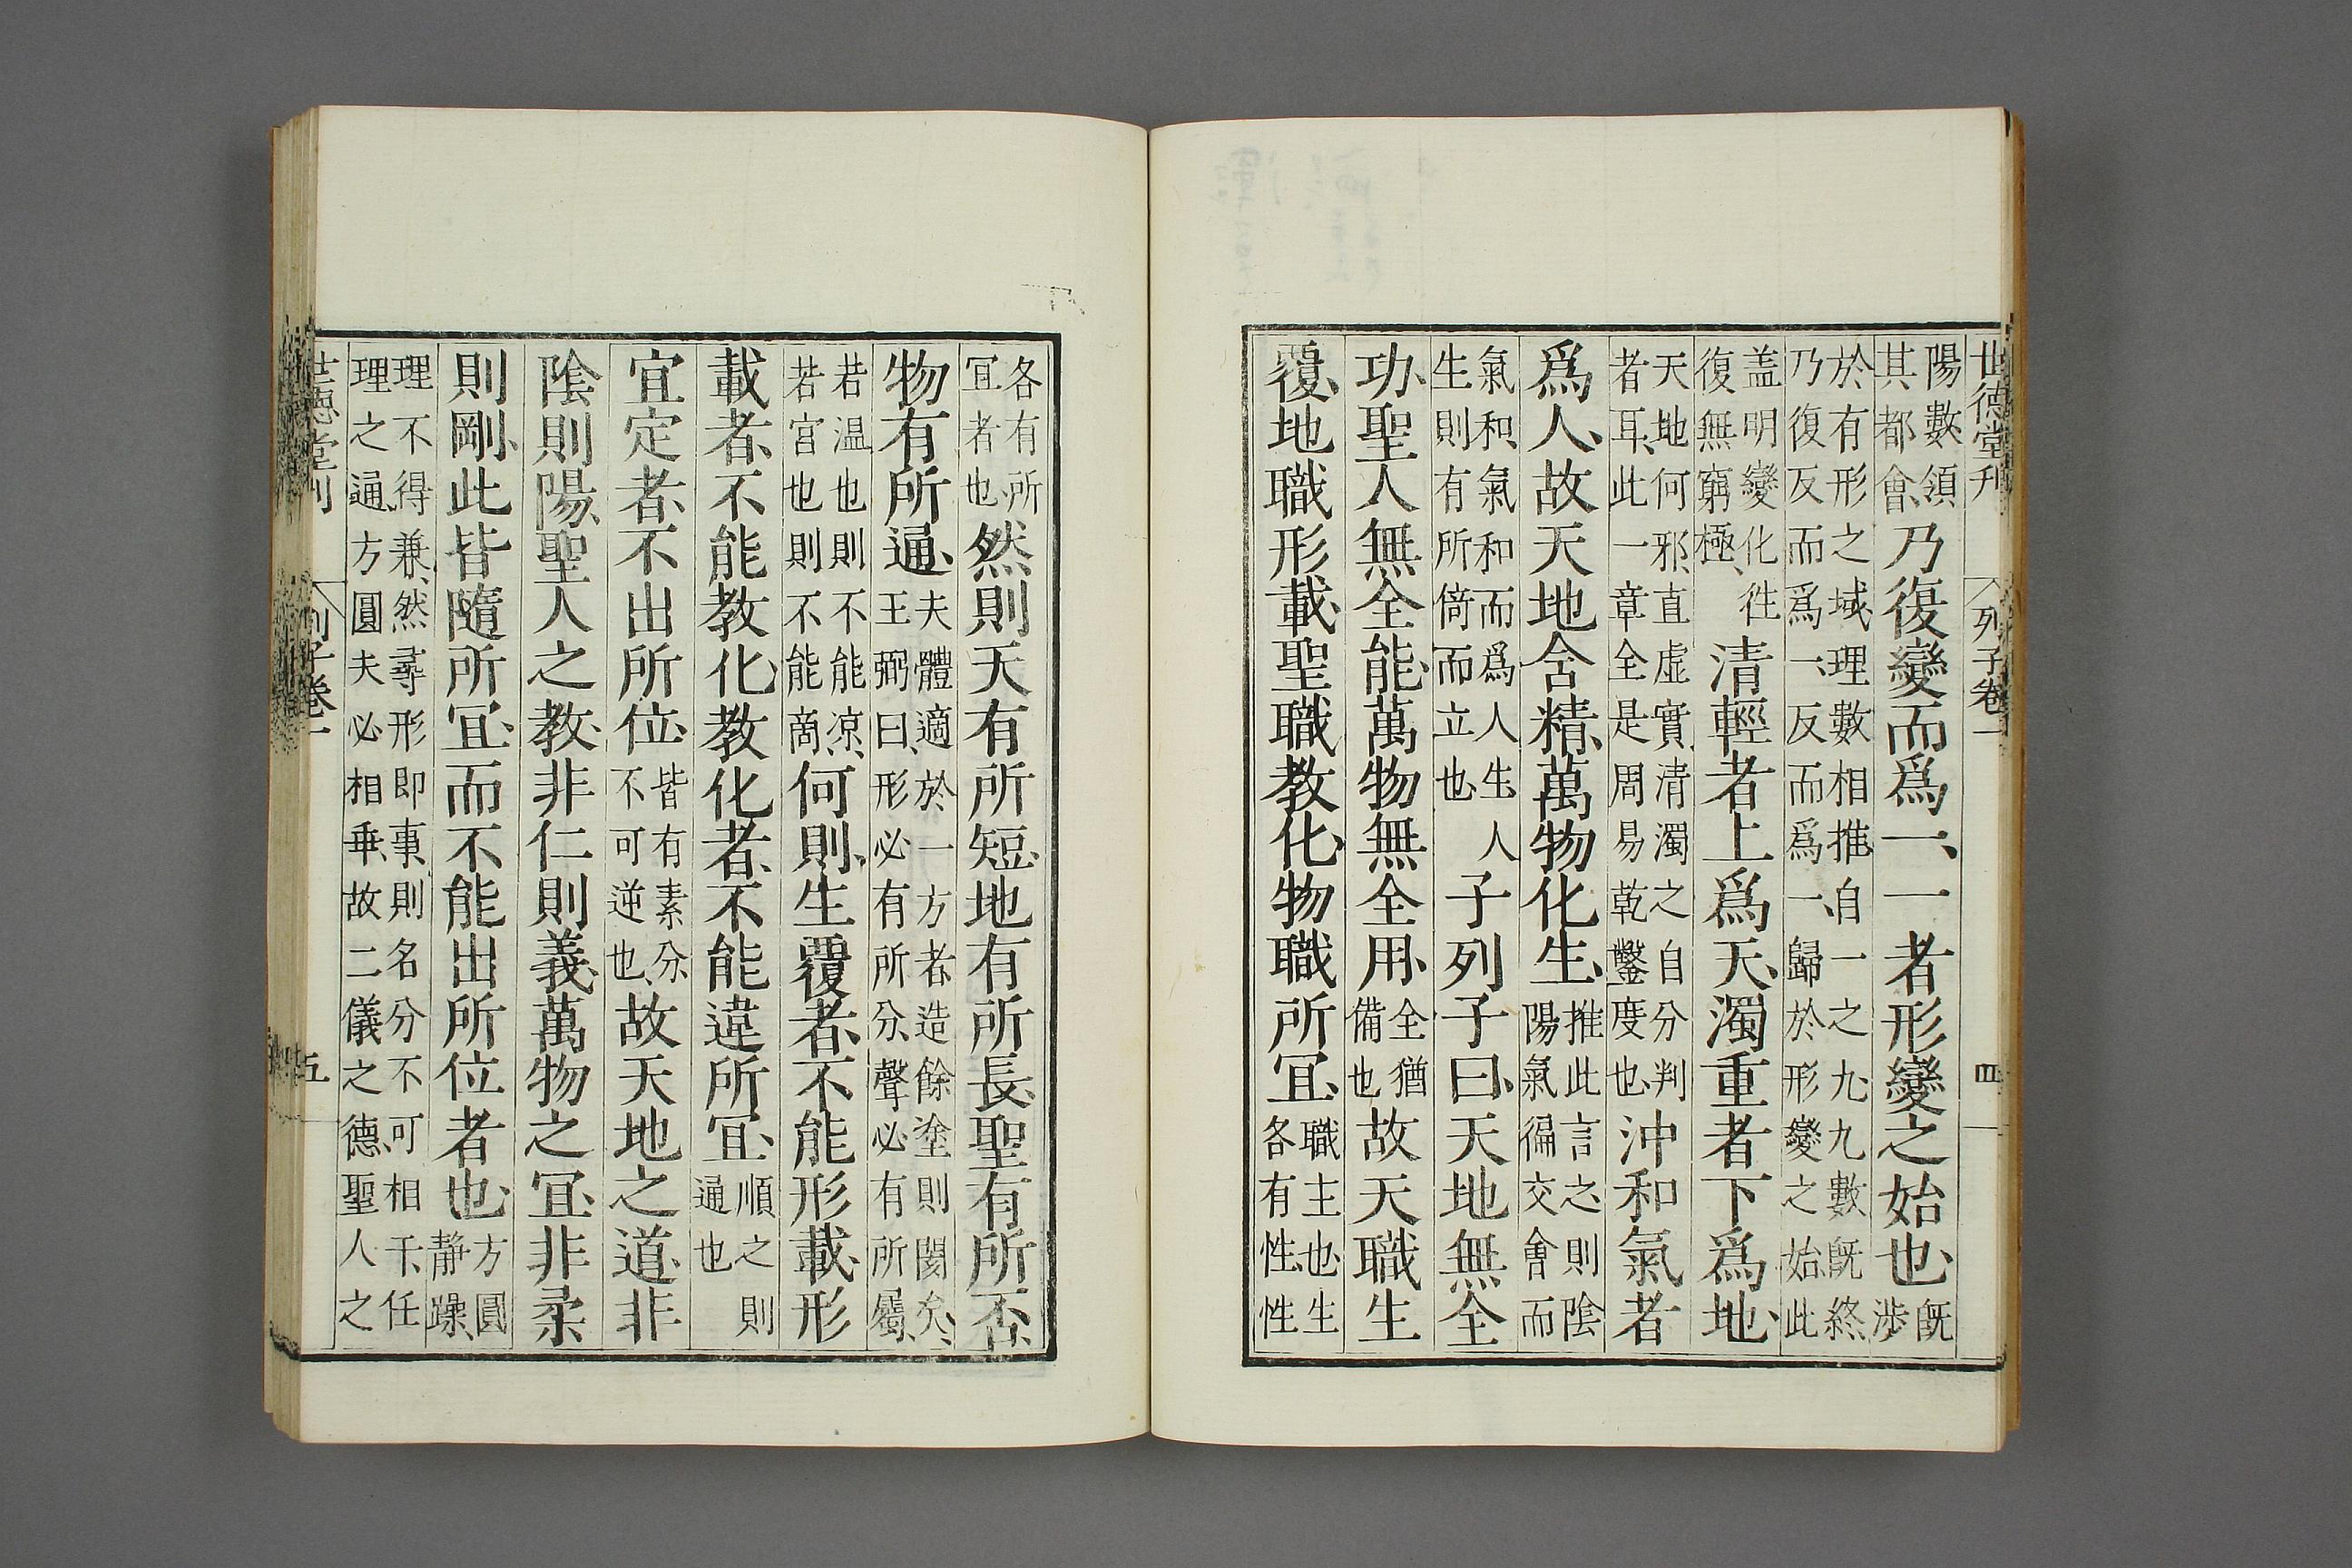 世德堂刊 列子卷一 四
陽數領其都會、乃復變而爲一、一者形變之始也、既涉
於有形之域、理數相推、自一之九、九數既終、乃復反而爲一、反而爲一、歸於形變之始、此
蓋明變化徃復無窮極、清輕者上爲天、濁重者下爲地、
天地何邪、直虛實清濁之自分判者耳、此一章全是周易乾鑿度也、沖和氣者
爲人、故天地含精、萬物化生、推此言之、則陰陽氣徧交會而
氣和、氣和而爲人生、人生則有所倚而立也、子列子曰、天地無全
功、聖人無全能、萬物無全用、全猶備也、故天職生
覆、地職形載、聖職教化、物職所冝、職主也、生各有性、性
各有所冝者也、然則天有所短、地有所長、聖有所否、
物有所通、夫體適於一方者、造餘塗則閡矣、王弼曰、形必有所分、聲必有所屬、
若温也則不能凉、若宮也則不能商、何則、生覆者、不能形載、形
載者、不能教化、教化者、不能違所冝、順之則通也、
宜定者、不出所位、皆有素分、不可逆也、故天地之道、非
陰則陽、聖人之教、非仁則義、萬物之冝、非柔
則剛、此皆隨所冝、而不能出所位者也、方圓靜躁、
理不得兼、然尋形即事、則名分不可相干、任理之通、方圓夫必相乖、故二儀之德、聖人之
世德堂刊 列子卷一 五